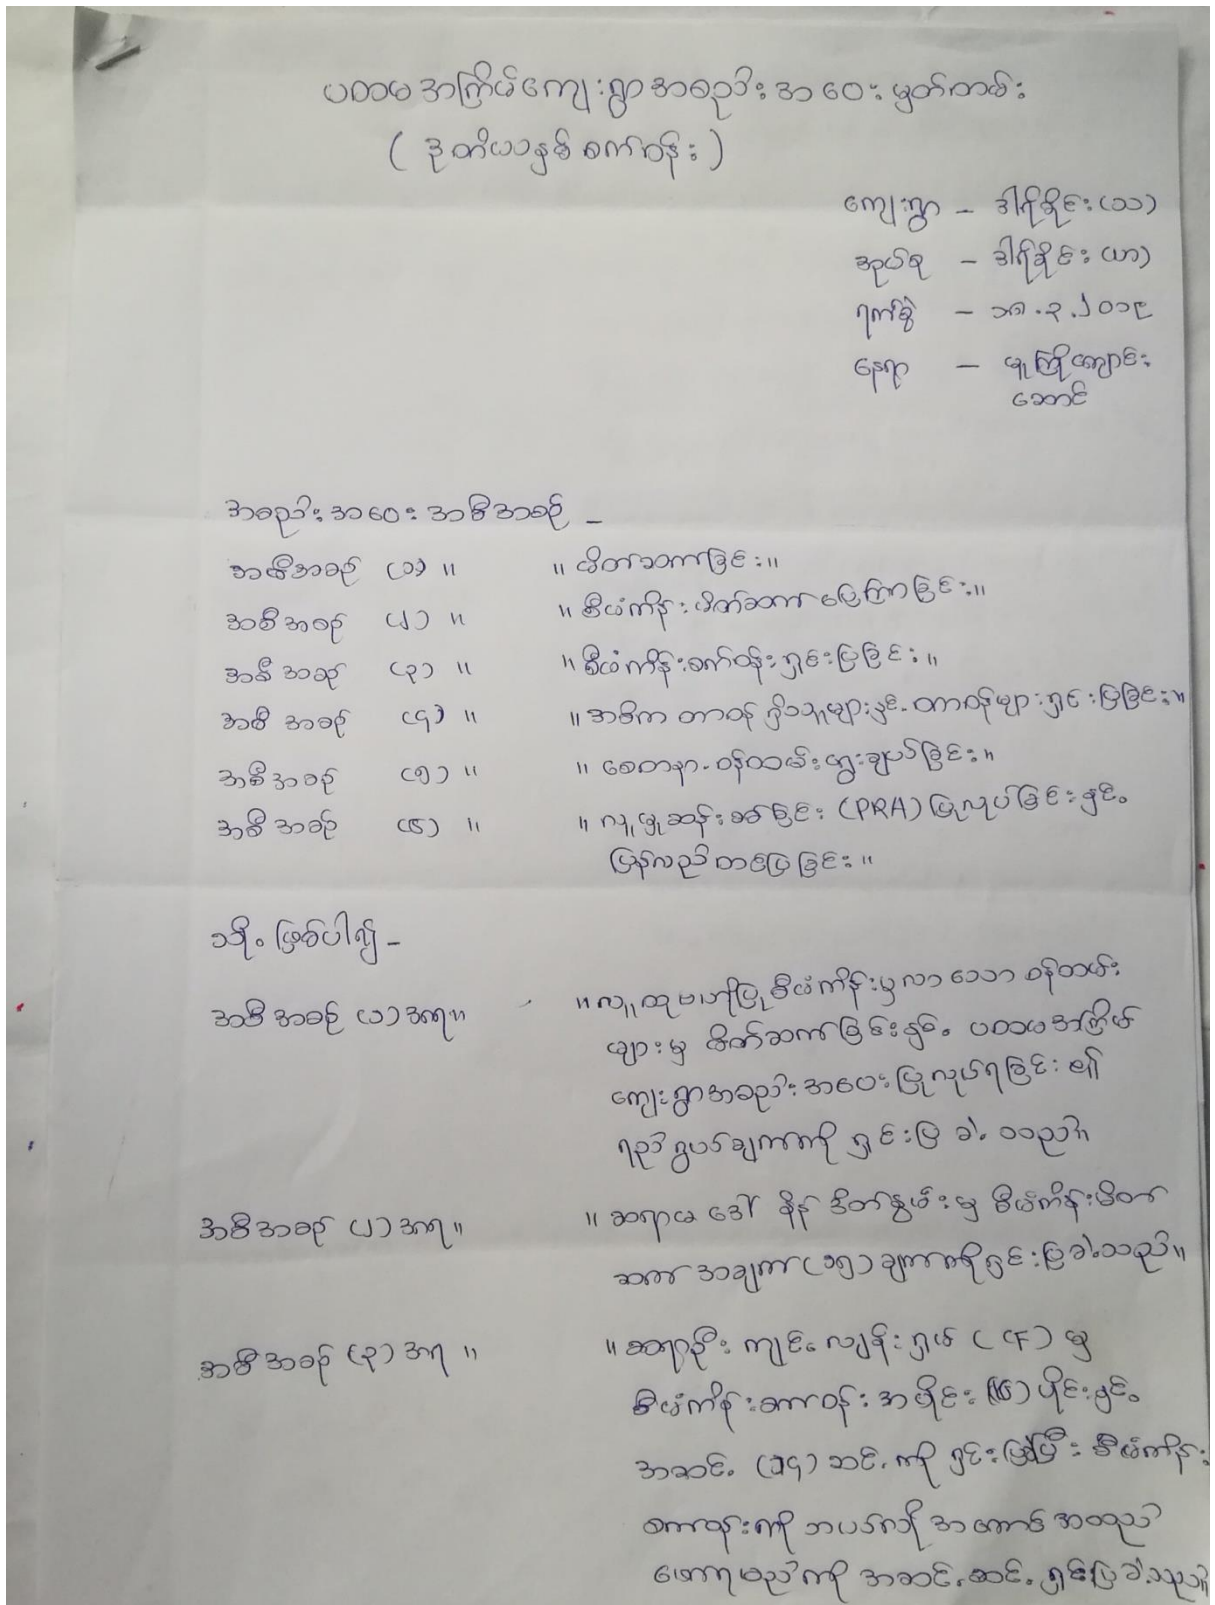 ပထမအကြိမ်ကျေးရွာအစည်းအဝေးမှတ်တမ်း
( ဒုတိယနှစ်စက်ဝန်း )
ကျေးရွာ – ဒါရိုခိုင်း(သာ)
အုပ်စု – ဒါရိုခိုင်း(ယာ)
ရက်စွဲ – ၁၈.၃.၂၀၁၉
နေရာ – မူကြိုကျောင်း
ဆောင်
အစည်းအဝေးအစီအစဉ် –
အစီအစဉ် (၁) ။ ။ မိတ်ဆက်ခြင်း။
အစီအစဉ် (၂) ။ ။ စီမံကိန်းမိတ်ဆက်ပြောကြားခြင်း။
အစီအစဉ် (၃) ။ ။ စီမံကိန်းစက်ဝန်းရှင်းပြခြင်း။
အစီအစဉ် (၄) ။ ။ အဓိကတာဝန်ရှိသူများနှင့်တာဝန်များရှင်းပြခြင်း။
အစီအစဉ် (၅) ။ ။ စေတနာ့ဝန်ထမ်းရွေးချယ်ခြင်း။
အစီအစဉ် (၆) ။ ။ လူမှုဆန်းစစ်ခြင်း (PRA) ပြုလုပ်ခြင်းနှင့်
ပြန်လည်တင်ပြခြင်း။
သို့ဖြစ်ပါ၍ –
အစီအစဉ် (၁) အရ။ ။ လူထုဗဟိုပြုစီမံကိန်းမှလာသောဝန်ထမ်း
များမှ မိတ်ဆက်ခြင်းနှင့် ပထမအကြိမ်
ကျေးရွာအစည်းအဝေးပြုလုပ်ရခြင်း၏
ရည်ရွယ်ချက်ကို ရှင်းပြခဲ့သည်။
အစီအစဉ် (၂) အရ။ ။ ဆရာမ ဒေါ် နိန် ဒိတ်နွမ်းမှ စီမံကိန်းမိတ်
ဆက် အချက် (၁၅) ချက်ကိုရှင်းပြခဲ့သည်။
အစီအစဉ် (၃) အရ ။ ။ ဆရာဦး ကျင့်လျန်းရှမ် ( CF ) မှ
စီမံကိန်းစက်ဝန်း အပိုင်း (၆) ပိုင်းနှင့်
အဆင့် (၁၄) ဆင့်ကို ရှင်းပြခဲ့ပြီး စီမံကိန်း
စက်ဝန်းကို ဘယ်လို အကောင်အထည်
ဖော်ရမည်ကို အဆင့်ဆင့် ရှင်းပြခဲ့သည်။